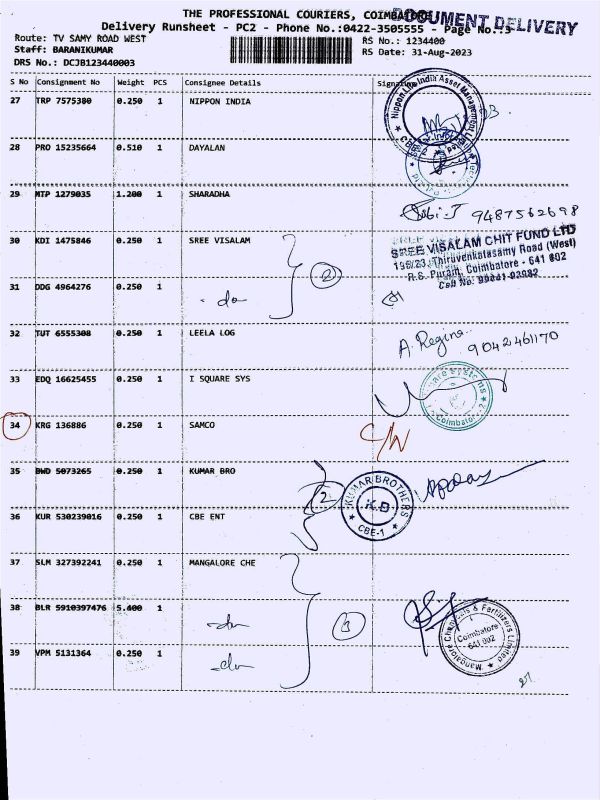 THE PROFESSIONAL COURIERS, COIMBATORE
DOCUMENT DELIVERY
Delivery Runsheet - PC2 - Phone No.:0422-3505555 - Page No.:3
Route: TV SAMY ROAD WEST
RS No.: 1234400
Staff: BARANIKUMAR
RS Date: 31-Aug-2023
DRS No.: DCJB123440003
S No Consignment No Weight PCS Consignee Details
27 TRP 7575380 0.250 1 NIPPON INDIA
Nippon Life India Asset Management Limited
CBE-2
28 PRO 15235664 0.510 1 DAYALAN
29 MTP 1279035 1.200 1 SHARADHA
9487562698
30 KDI 1475846 0.250 1 SREE VISALAM
2
SREE VISALAM CHIT FUND LTD
196/23, Thiruvenkatasamy Road (West)
R.S. Puram, Coimbatore - 641 002
31 DDG 4964276 0.250 1 - do
32 TUT 6555308 0.250 1 LEELA LOG
A. Regina
9042461170
33 EDQ 16625455 0.250 1 I SQUARE SYS
Coimbatore - 2
34 KRG 136886 0.250 1 SAMCO
C/N
35 BWD 5073265 0.250 1 KUMAR BRO
2
KUMAR BROTHERS
K.B
CBE-1
36 KUR 530239016 0.250 1 CBE ENT
37 SLM 327392241 0.250 1 MANGALORE CHE
38 BLR 5910397476 5.400 1 -do
3
Mangalore Chemicals & Fertilizers Limited
Coimbatore
641 002
39 VPM 5131364 0.250 1 -do